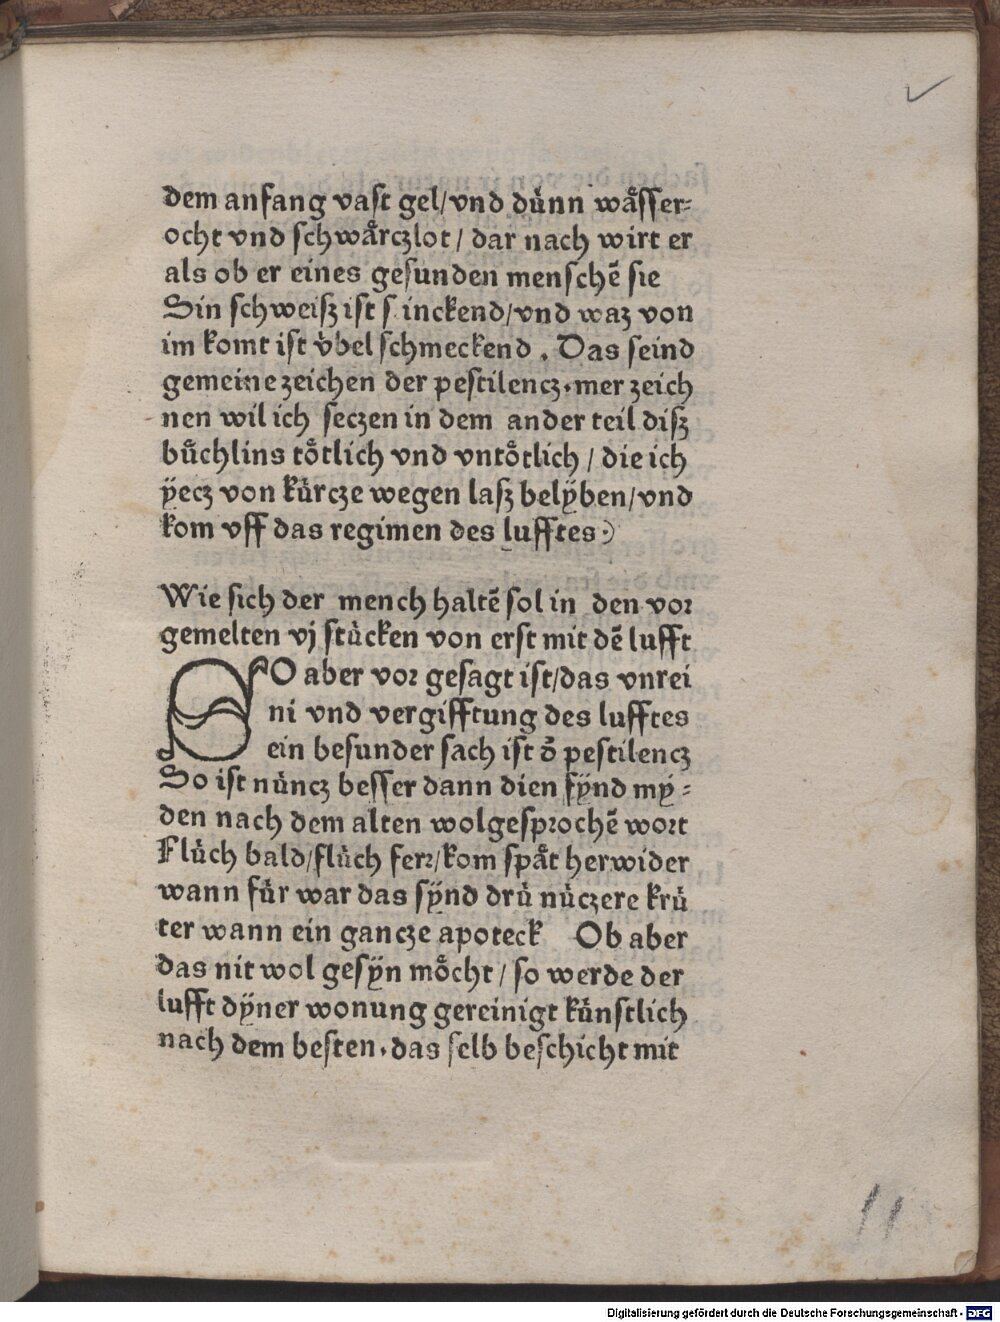 dem anfang vast gel/vnd dúnn wåsser⸗
ocht vnd schwårczlot / dar nach wirt er
als ob er eines gesunden menschē sie
Sin schweiß ist s inckend/vnd waz von
im komt ist v̇bel schmeckend . Das seind
gemeine zeichen der pestilencz.mer zeich
nen wil ich seczen in dem ander teil diß
bůchlins tȯtlich vnd vntȯtlich / die ich
ÿecz von kůrcze wegen laß belÿben/vnd
kom vff das regimen des lufftes.)
Wie sich der mench haltē sol in den voꝛ
gemelten vj stùcken von erst mit dē lufft
SO aber voꝛ gesagt ist/das vnrei
ni vnd vergifftung des lufftes
ein besunder sach ist ō pestilencz
So ist nůncz besser dann dien fÿnd mÿ⸗
den nach dem alten wolgespꝛochē woꝛt
Flùch bald/flùch ferꝛ/kom spåt herwider
wann fůr war das sÿnd drů nůczere krů
ter wann ein gancze apoteck Ob aber
das nit wol gesÿn mȯcht / so werde der
lufft dÿner wonung gereinigt kůnstlich
nach dem besten.das selb beschicht mit
11
Digitalisierung gefördert durch die Deutsche Forschungsgemeinschaft - DFG